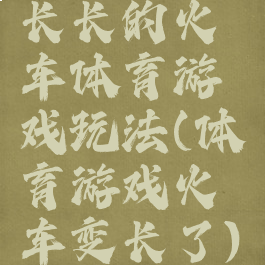 长长的火
车体育游
戏玩法(体
育游戏火
车变长了)